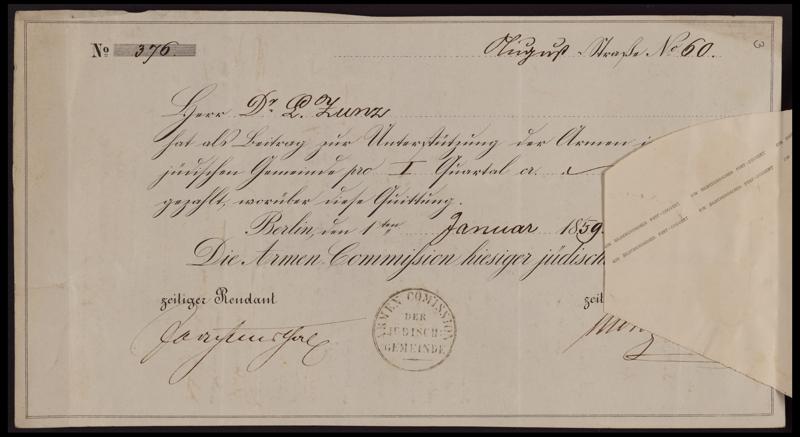 No 376.
August Straße No 60.
3
Herr Dr. L. Zunz
hat als Beitrag zur Unterstützung der Armen
jüdischen Gemeinde pro I Quartal cr.
gezahlt, worüber diese Quittung.
Berlin, den 1ten Januar 1859.
Die Armen Commission hiesiger jüdisch
zeitiger Rendant
zeit
ARMEN COMISSION
DER
JUDISCH:
GEMEINDE